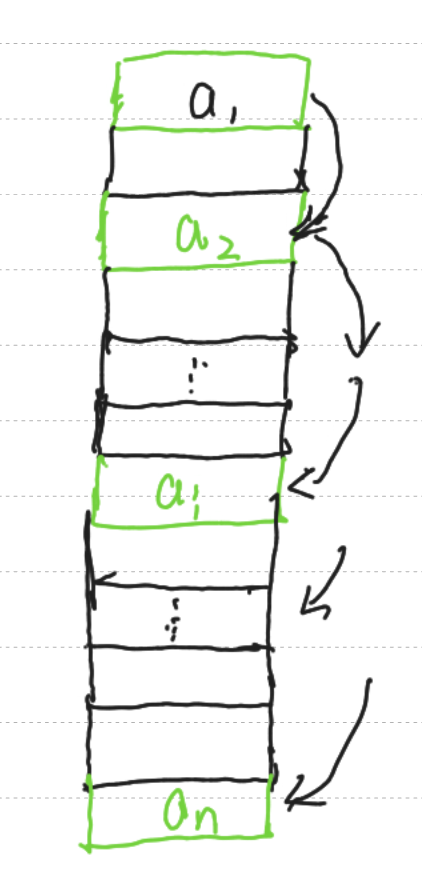 a₁
a₂
⋮
aᵢ
⋮
aₙ